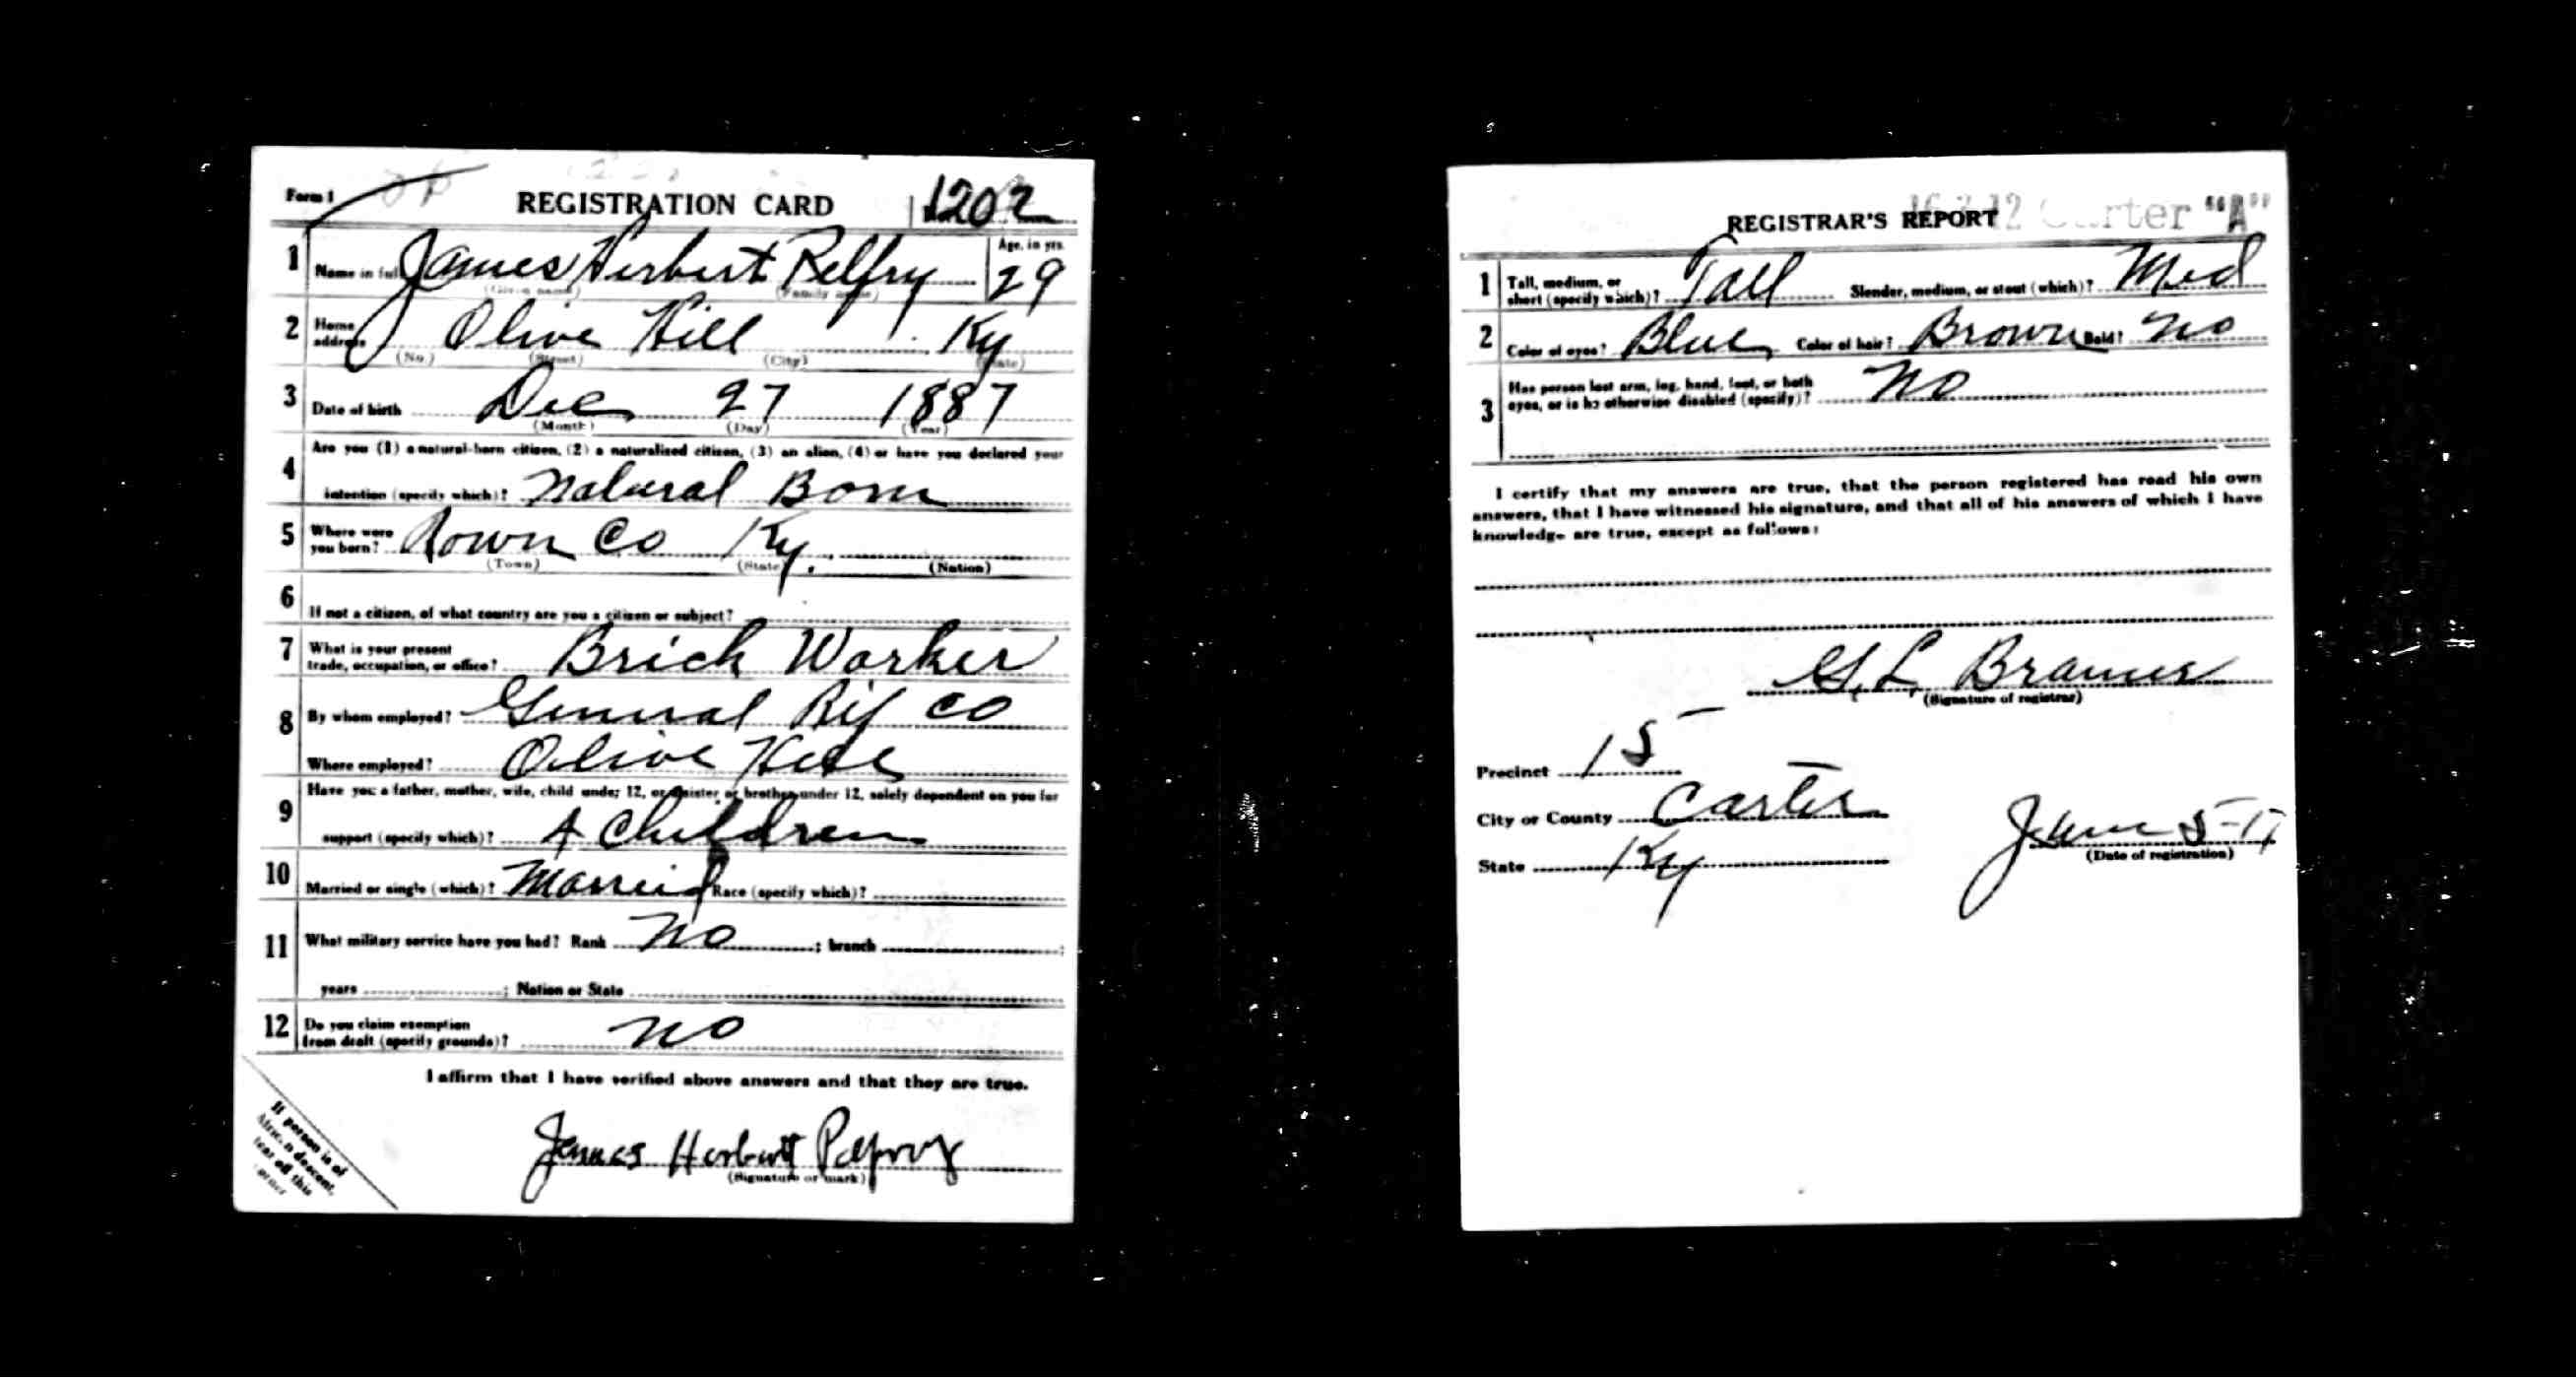 Form 1 REGISTRATION CARD 1202
1 Name in full James Herbert Pelfry Age, in yrs. 29
(Given name) (Family name)
2 Home address Olive Hill Ky
(No.) (Street) (City) (State)
3 Date of birth Dec 27 1887
(Month) (Day) (Year)
4 Are you (1) a natural-born citizen, (2) a naturalized citizen, (3) an alien, (4) or have you declared your
intention (specify which)? Natural Born
5 Where were you born? Rown Co Ky.
(Town) (State) (Nation)
6 If not a citizen, of what country are you a citizen or subject?
7 What is your present
trade, occupation, or office? Brick Worker
8 By whom employed? General Rif Co
Where employed? Olive Hill
9 Have you a father, mother, wife, child under 12, or a sister or brother under 12, solely dependent on you for
support (specify which)? 4 Children
10 Married or single (which)? Married Race (specify which)?
11 What military service have you had? Rank No ; branch ;
years ; Nation or State
12 Do you claim exemption
from draft (specify grounds)? No
I affirm that I have verified above answers and that they are true.
James Herbert Pelfrey
(Signature or mark)
If person is of
African descent,
tear off this
corner
REGISTRAR'S REPORT 16-3-12 Carter "A"
1 Tall, medium, or
short (specify which)? Tall Slender, medium, or stout (which)? Med
2 Color of eyes? Blue Color of hair? Brown Bald? No
3 Has person lost arm, leg, hand, foot, or both
eyes, or is he otherwise disabled (specify)? No
I certify that my answers are true, that the person registered has read his own
answers, that I have witnessed his signature, and that all of his answers of which I have
knowledge are true, except as follows:
G. L. Bramer
(Signature of registrar)
Precinct 15
City or County Carter
State Ky
June 5-17
(Date of registration)